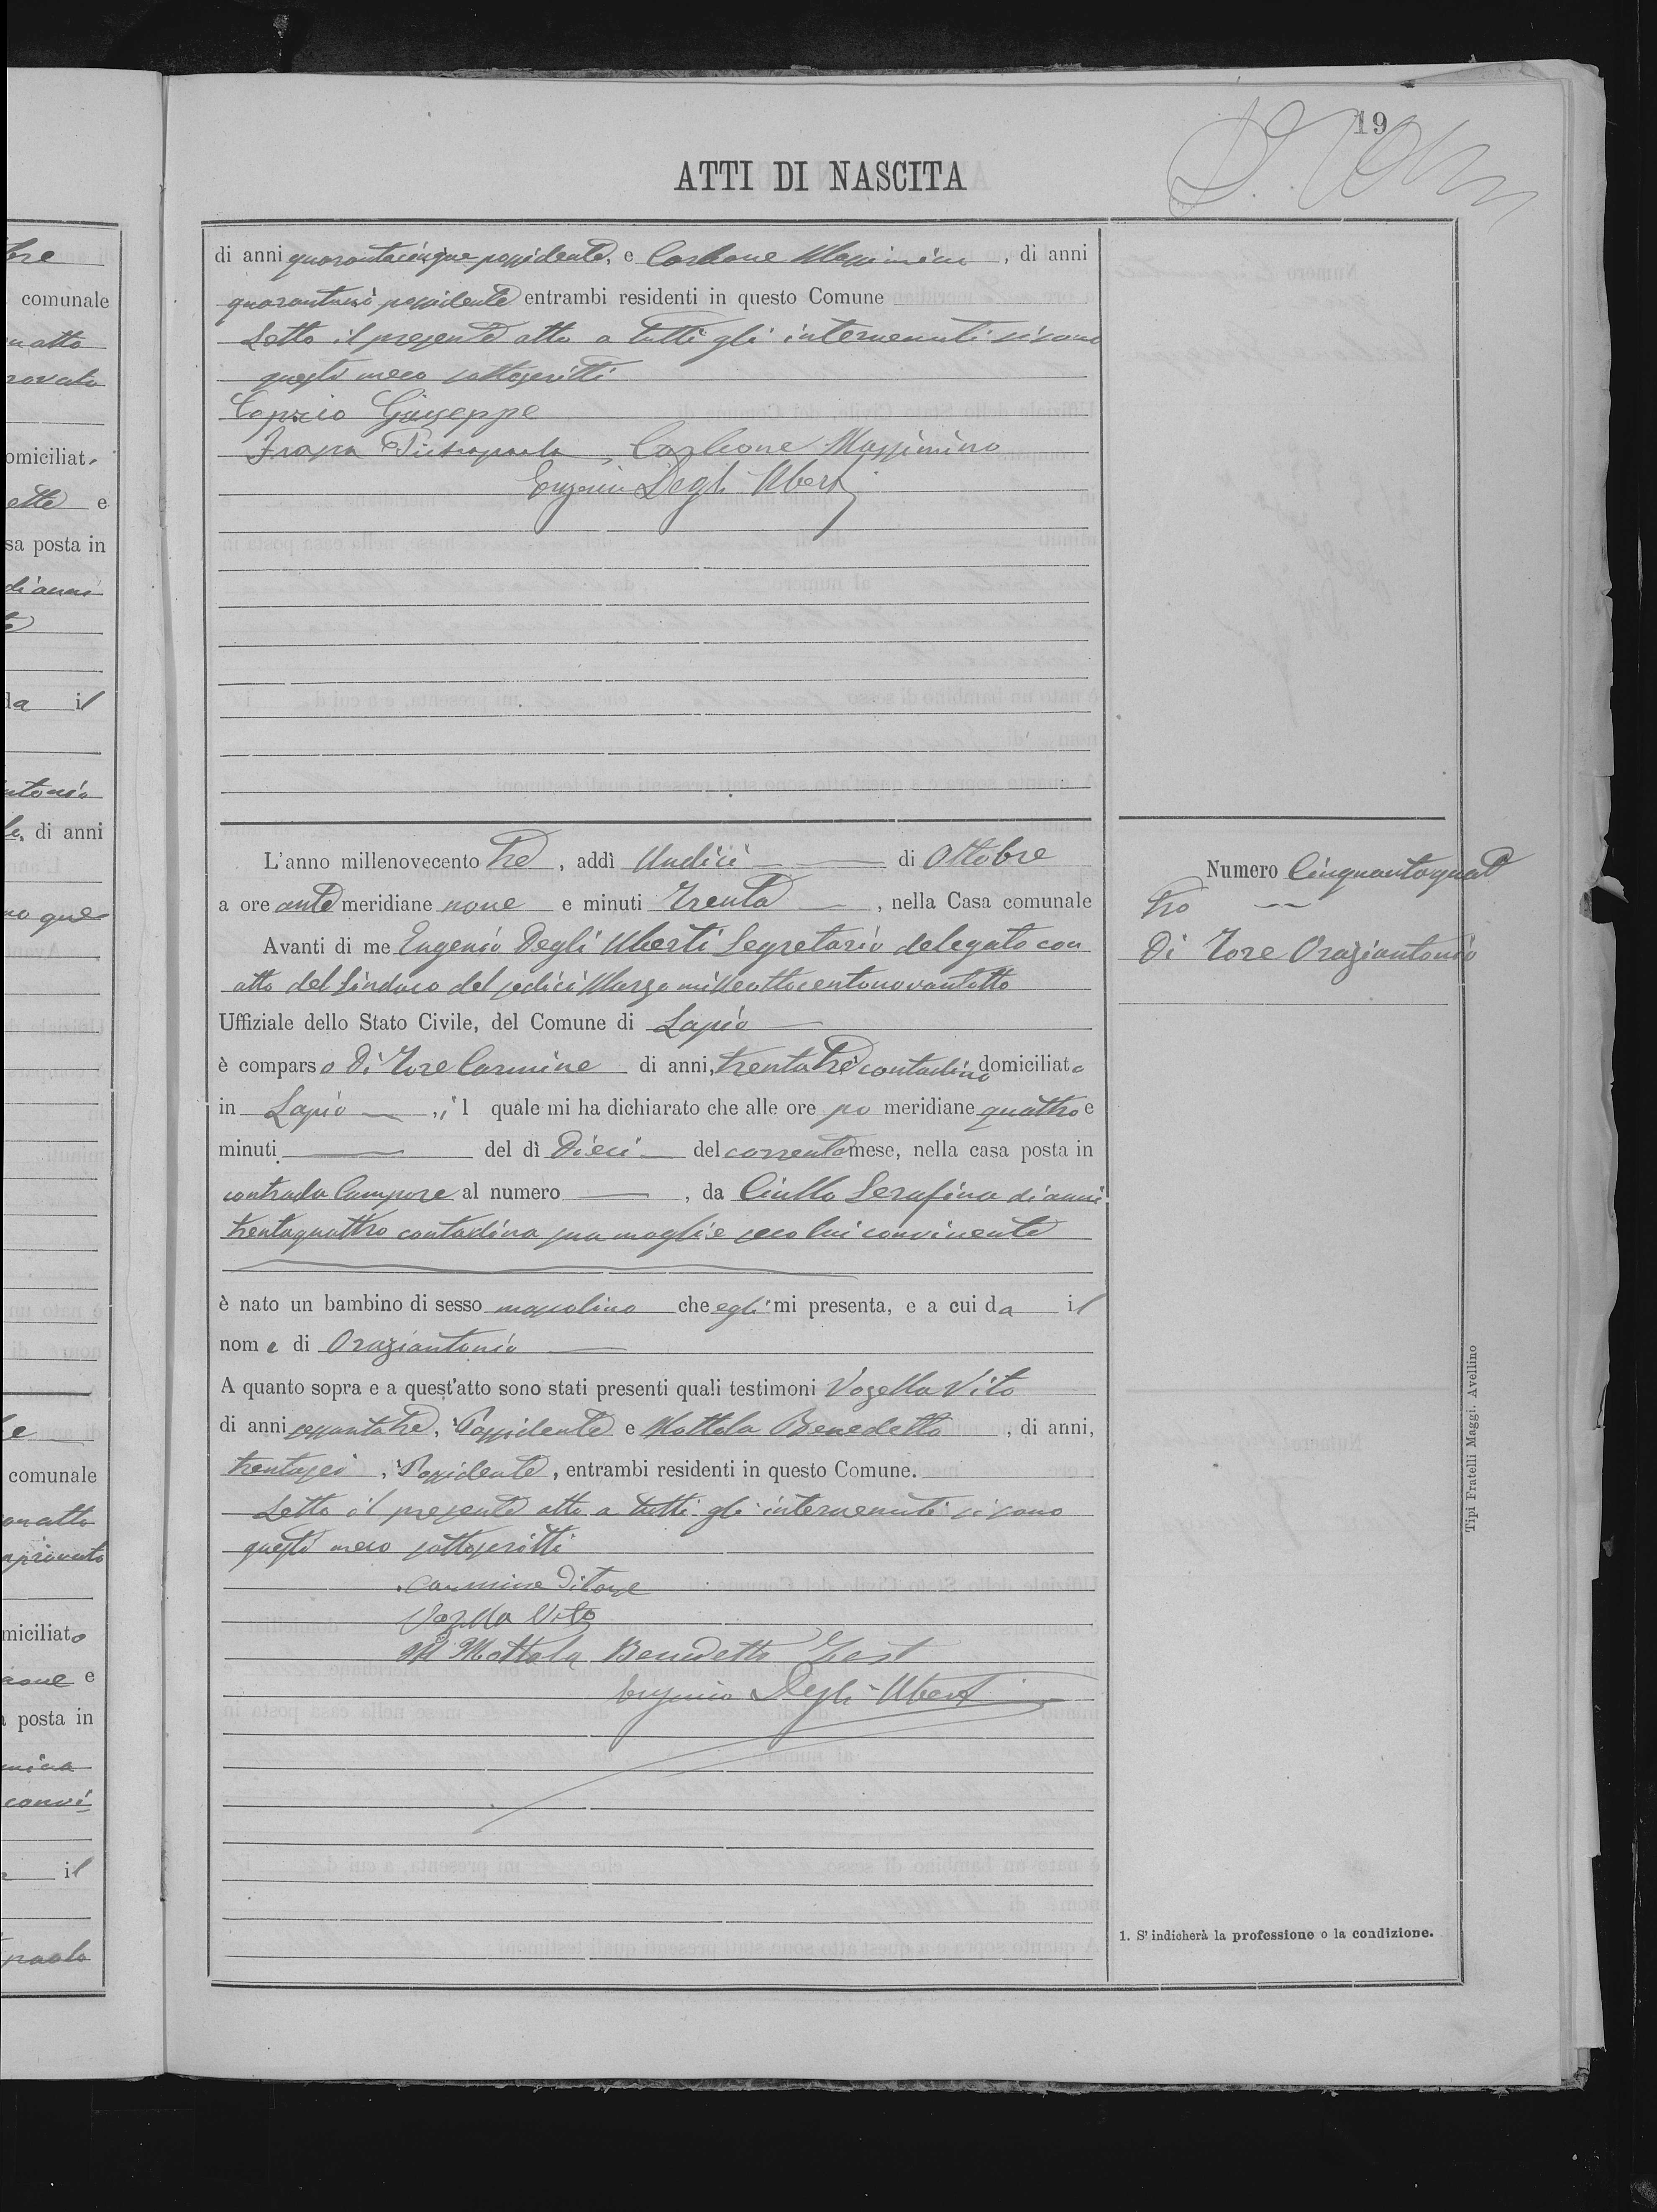 19
ATTI DI NASCITA
di anni quarantacinque possidente, e Carbone Massimino, di anni
possidente entrambi residenti in questo Comune
Letto il presente atto a tutti gli intervenuti si sono
questi meco sottoscritti
Caprio Giuseppe
Carbone Massimino
Eugenio Degli Uberti
L'anno millenovecento tre, addì Undici di Ottobre
a ore antemeridiane nove e minuti Trenta, nella Casa comunale
Avanti di me Eugenio Degli Uberti Segretario delegato con
atto del Sindaco del sedici Marzo milleottocentonovantotto
Uffiziale dello Stato Civile, del Comune di Lapio
è comparso Di Tore Carmine di anni, trentatre contadino domiciliato
in Lapio, il quale mi ha dichiarato che alle ore po meridiane quattro e
minuti del dì Dieci del corrente mese, nella casa posta in
contrada Campore al numero, da Ciullo Serafina di anni
trentaquattro contadina sua moglie seco lui convivente
è nato un bambino di sesso mascolino che egli mi presenta, e a cui da il
nome di Oraziantonio
A quanto sopra e a quest'atto sono stati presenti quali testimoni Vozella Vito
di anni sessantatre, Possidente e Mottola Benedetto, di anni,
trentasei, Possidente, entrambi residenti in questo Comune.
Letto il presente atto a tutti gli intervenuti si sono
questi meco sottoscritti
Carmine Ditore
Vozella Vito
Mottola Benedetto Test
Eugenio Degli Uberti
Numero Cinquantaquat
tro
Di Tore Oraziantonio
1. S' indicherà la professione o la condizione.
Tipi Fratelli Maggi. Avellino
bre
comunale
n atto
rovato
omiciliat
ette e
sa posta in
di anni
da il
ntonio
le, di anni
no que
comunale
on atto
aprovato
miciliato
e
posta in
convi
il
paolo